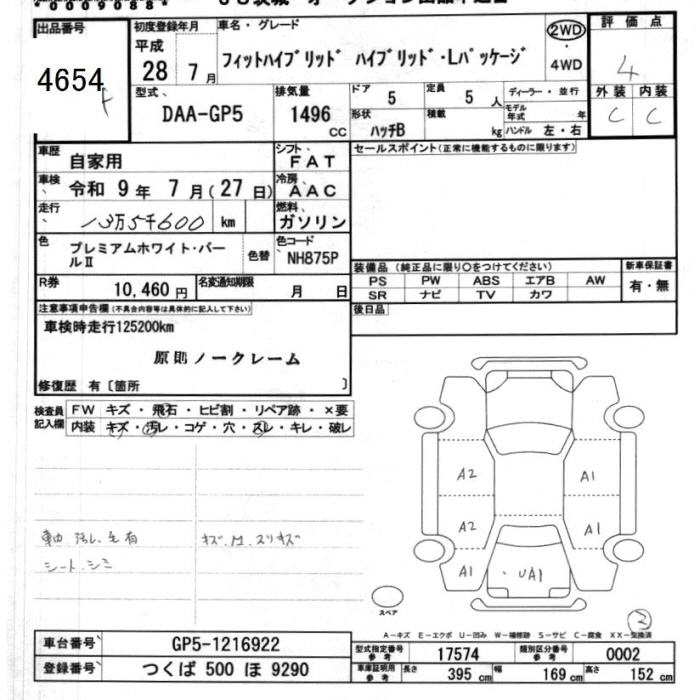 *00090888*
出品番号 4654
初度登録年月 平成 28年 7月
車名・グレード フィットハイブリッド ハイブリッド・Lパッケージ
2WD・4WD
評価点 4
外装 C 内装 C
型式、 DAA-GP5
排気量 1496 CC
ドア 5 定員 5 人
形状 ハッチB 積載 kg
ディーラー・並行
モデル年式 年
ハンドル 左・右
車歴 自家用
シフト、 FAT
セールスポイント(正常に機能するものに限ります)
車検、 令和 9年 7月(27日)
冷房、 AAC
走行、 13万5千600 km
燃料、 ガソリン
色 プレミアムホワイト・パールⅡ
色替
色コード NH875P
装備品(純正品に限り○をつけてください) 新車保証書
PS PW ABS エアB AW 有・無
SR ナビ TV カワ
R券 10,460円
名変通知期限 月 日
後日品
注意事項申告欄(不具合内容等は具体的に記入して下さい)
車検時走行125200km
原則ノークレーム
修復歴 有〔箇所 〕
検査員記入欄
FW キズ・飛石・ヒビ割・リペア跡・×要
内装 キズ・汚レ・コゲ・穴・スレ・キレ・破レ
A2 A1
A2 A1
A1 UA1
シート、シミ
スペア
3
A-キズ E-エクボ U-凹み W-補修跡 S-サビ C-腐食 XX-交換済
車台番号 GP5-1216922
型式指定番号 参考 17574
類別区分番号 参考 0002
登録番号 つくば 500 ほ 9290
車庫証明用 参考 長さ 395 cm 幅 169 cm 高さ 152 cm